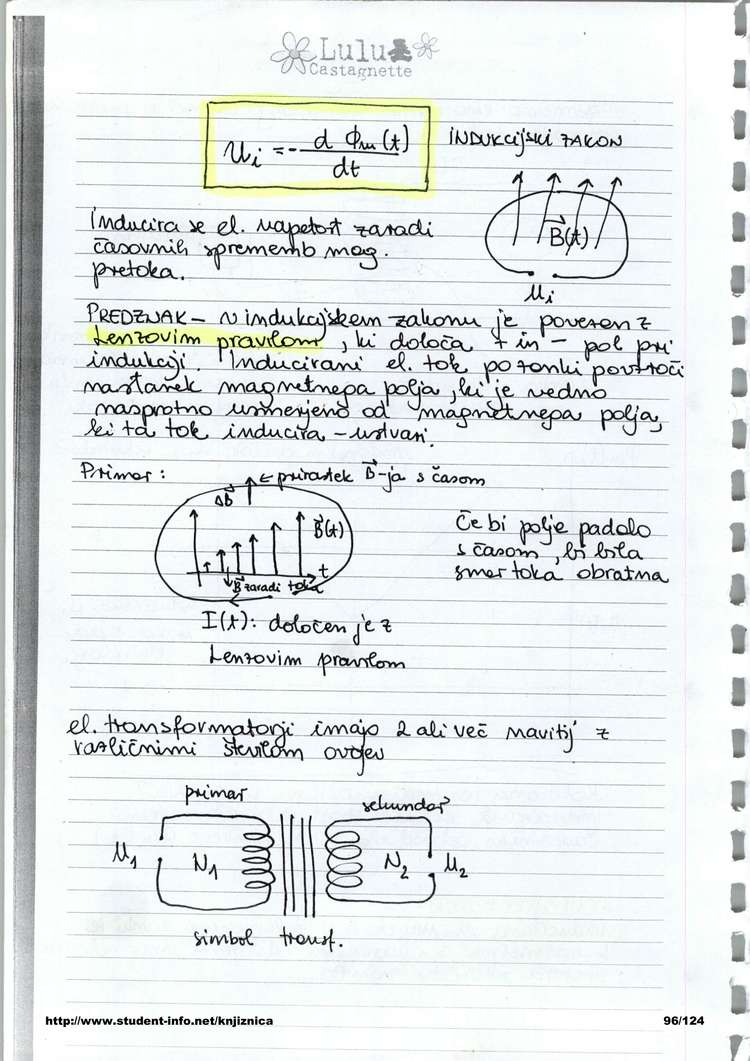 Lulu
Castagnette
u_i = - d Φ_m (t) / dt
INDUKCIJSKI ZAKON
Inducira se el. napetost zaradi
časovnih sprememb mag.
pretoka.
B(t)
u_i
PREDZNAK – v indukcijskem zakonu je povezan z
Lenzovim pravilom, ki določa + in – pol pri
indukciji. Inducirani el. tok po zanki povzroči
nastanek magnetnega polja, ki je vedno
nasprotno usmerjeno od magnetnega polja,
ki ta tok inducira – ustvari.
Primer:
← prirastek B-ja s časom
ΔB
B(t)
t
B zaradi toka
Če bi polje padalo
s časom, bi bila
smer toka obratna
I(t): določen je z
Lenzovim pravilom
el. transformatorji imajo 2 ali več navitij z
različnimi številom ovojev
primar
sekundar
u1
N1
N2
u2
simbol transf.
http://www.student-info.net/knjiznica
96/124